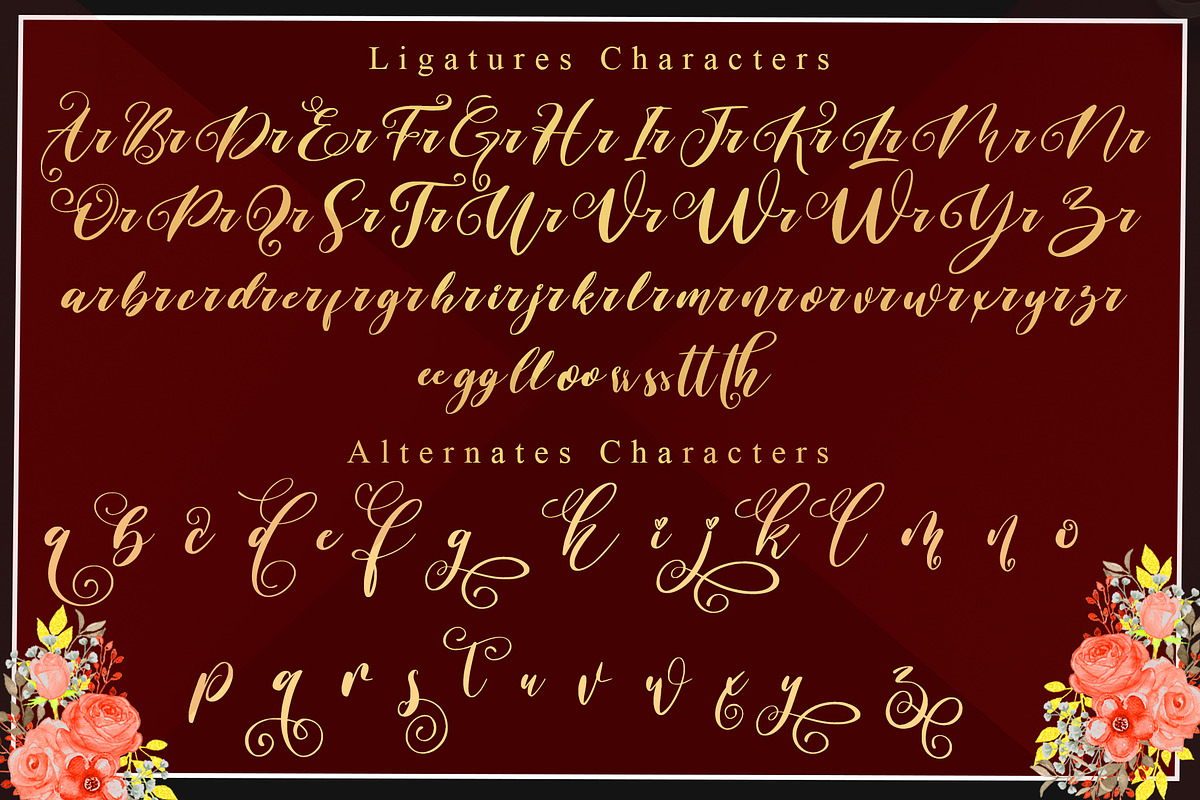 Ligatures Characters
Ar Br Dr Er Fr Gr Hr Ir Jr Kr Lr Mr Nr
Or Pr Qr Sr Tr Ur Vr Wr Wr Yr Zr
ar br cr dr er fr gr hr ir jr kr lr mr nr or vr wr xr yr zr
ee gg ll oo rr ss tt th
Alternates Characters
a b c d e f g h i j k l m n o
p q r s t u v w x y z